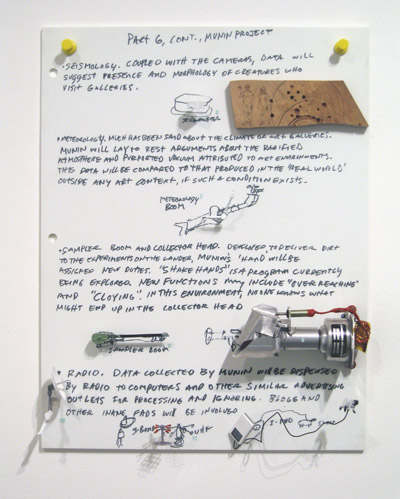 PART 6, CONT., MUNIN PROJECT
•SEISMOLOGY. COUPLED WITH THE CAMERAS, DATA WILL
SUGGEST PRESENCE AND MORPHOLOGY OF CREATURES WHO
VISIT GALLERIES.
•METEOROLOGY. MUCH HAS BEEN SAID ABOUT THE CLIMATE OF ART GALLERIES.
MUNIN WILL LAY TO REST ARGUMENTS ABOUT THE RARIFIED
ATMOSPHERE AND PURPORTED VACUUM ATTRIBUTED TO ART ENVIRONMENTS.
THIS DATA WILL BE COMPARED TO THAT PRODUCED IN THE 'REAL WORLD'
OUTSIDE ANY ART CONTEXT, IF SUCH A CONDITION EXISTS.
METEOROLOGY
BOOM
•SAMPLER BOOM AND COLLECTOR HEAD. DEVELOPED TO DELIVER DIRT
TO THE EXPERIMENTS ON THE LANDER, MUNIN'S 'HAND' WILL BE
ASSIGNED NEW DUTIES. 'SHAKE HANDS' IS A PROGRAM CURRENTLY
BEING EXPLORED. NEW FUNCTIONS MAY INCLUDE "OVER REACHING"
AND "CLOYING". IN THIS ENVIRONMENT, NO ONE KNOWS WHAT
MIGHT END UP IN THE COLLECTOR HEAD
SAMPLER BOOM
• RADIO. DATA COLLECTED BY MUNIN WILL BE DISPENSED
BY RADIO TO COMPUTERS AND OTHER SIMILAR ADVERTISING
OUTLETS FOR PROCESSING AND IGNORING. BLOGS AND
OTHER INANE FADS WILL BE INVOLVED
S-BAND
UHF
I-POD